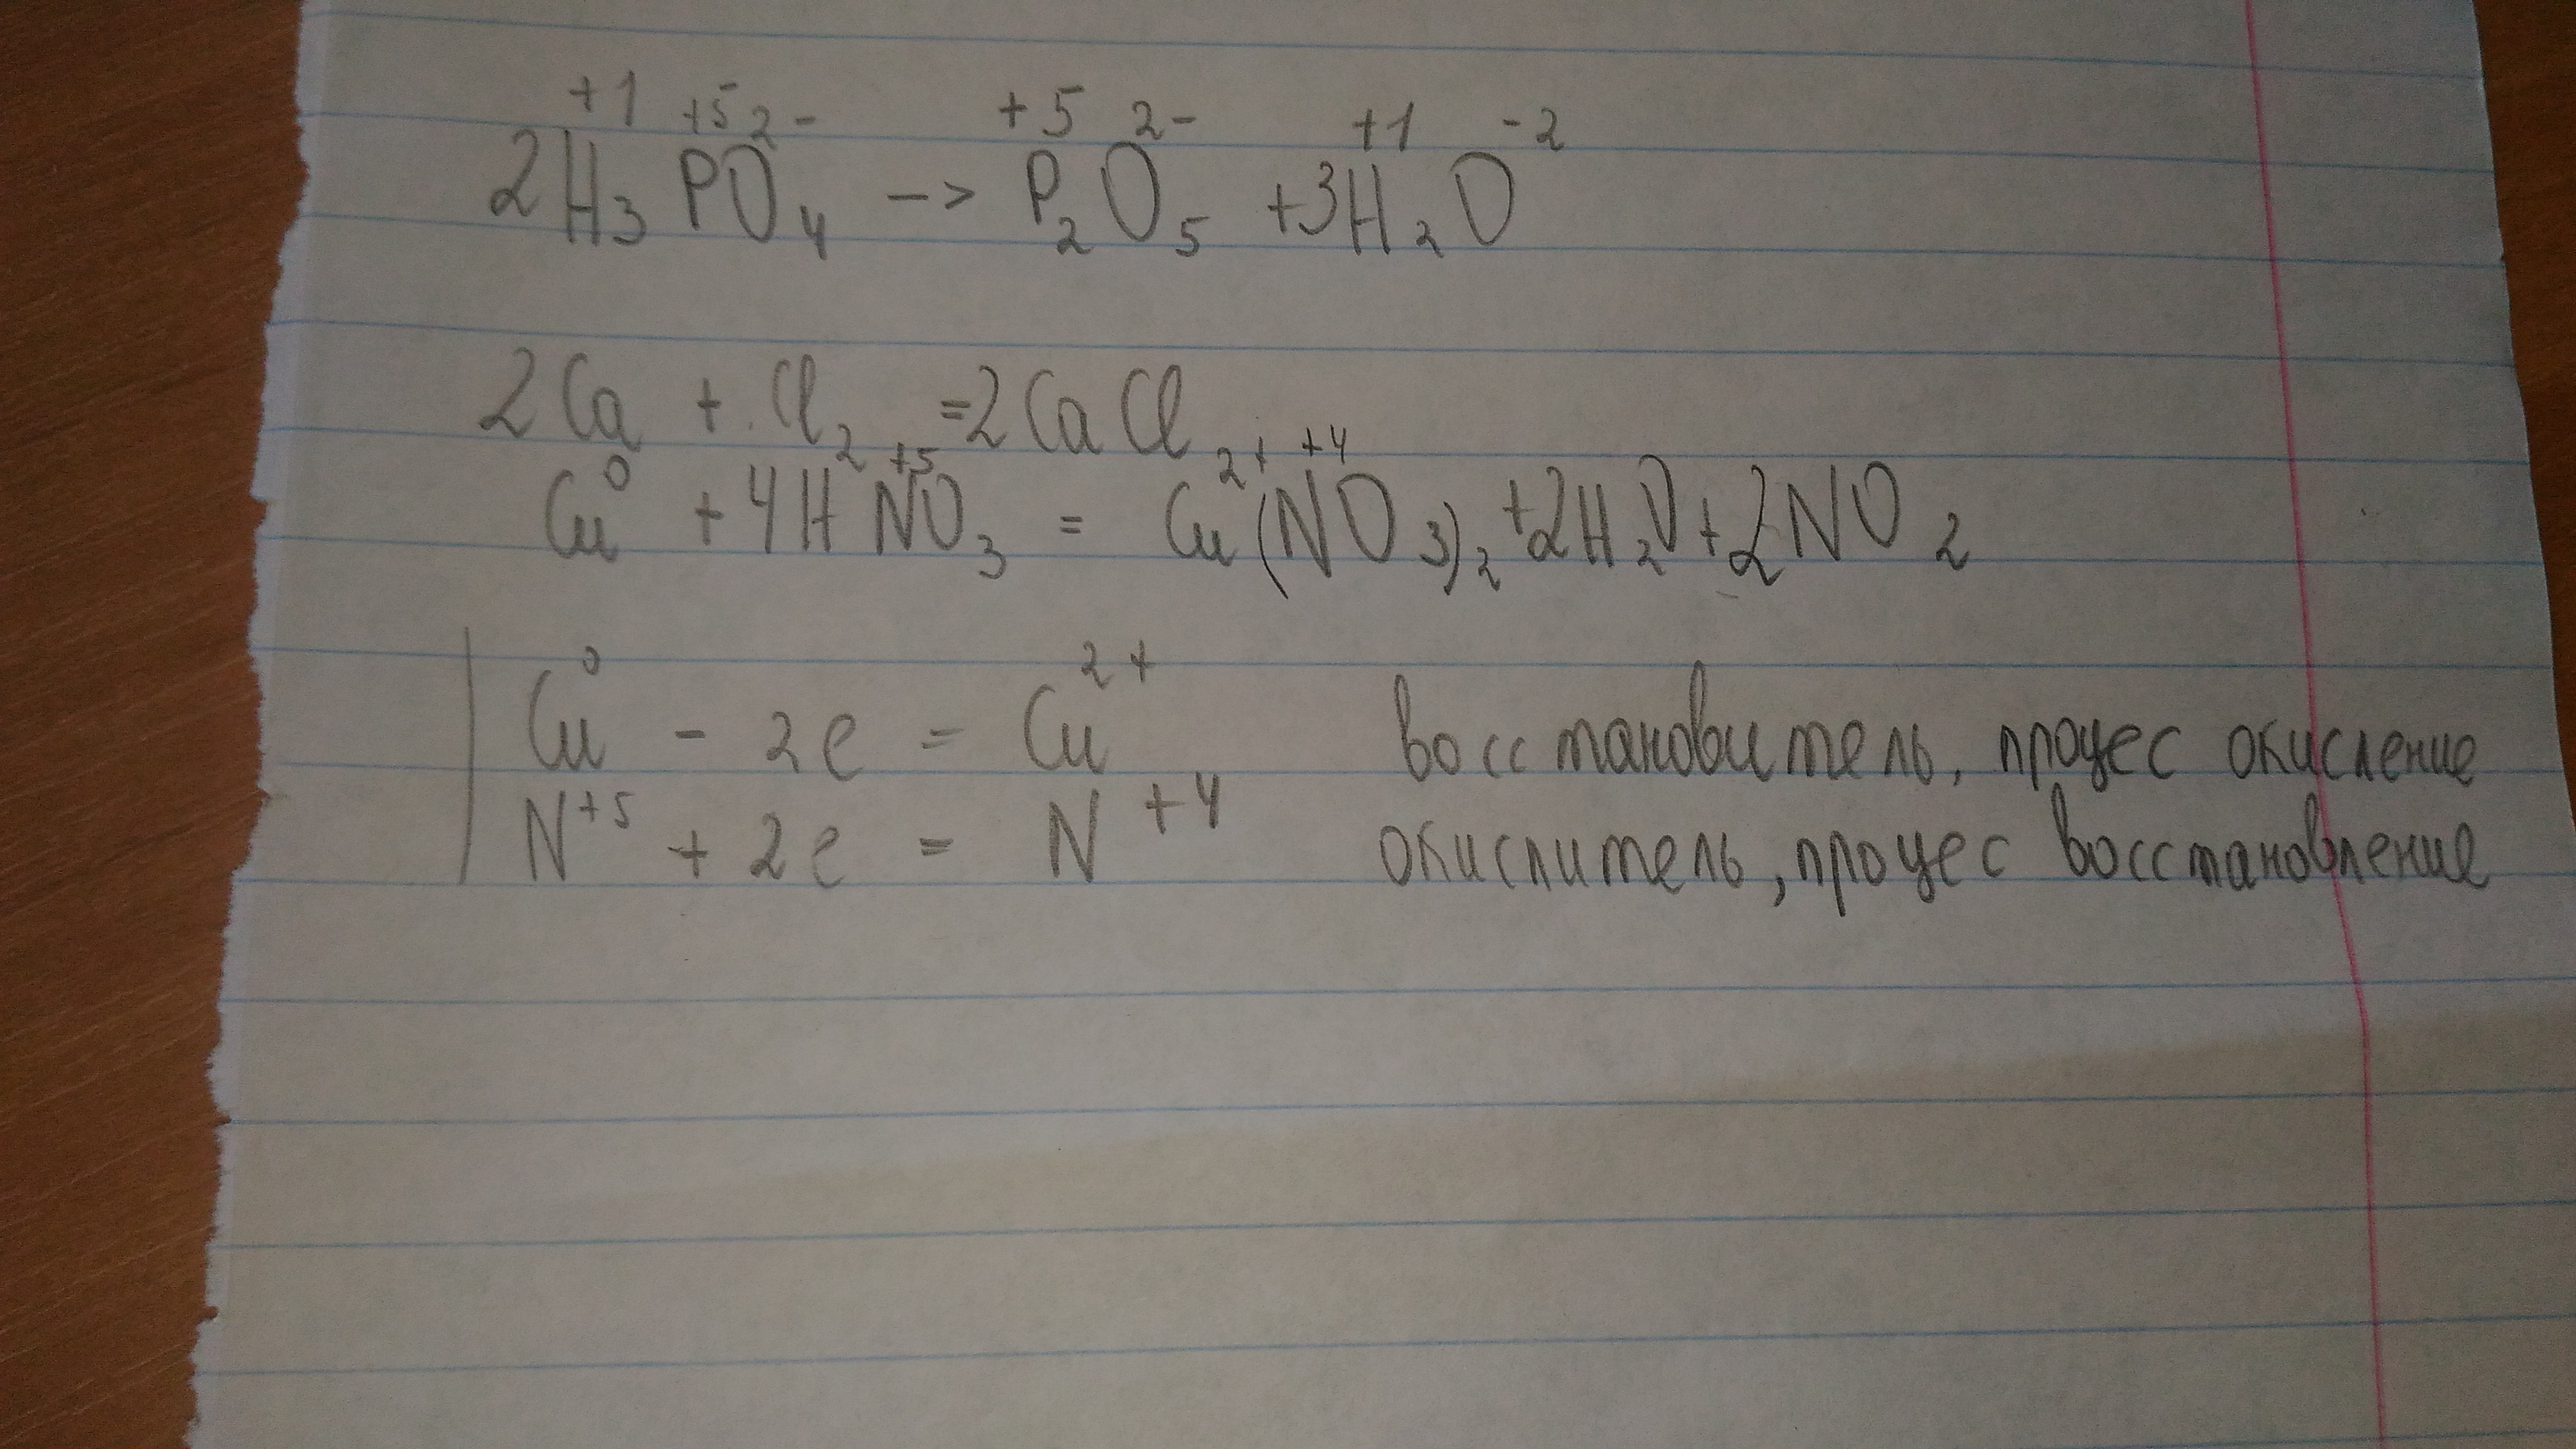 +1 +5 2- +5 2- +1 -2
2H₃PO₄ -> P₂O₅ +3H₂O
2Ca + Cl₂ =2CaCl
0 +5 2+ +4
Cu + 4HNO₃ = Cu(NO₃)₂ +2H₂O+2NO₂
Cu⁰ - 2e = Cu²⁺ восстановитель, процес окисление
N⁺⁵ + 2e = N⁺⁴ окислитель, процес восстановление